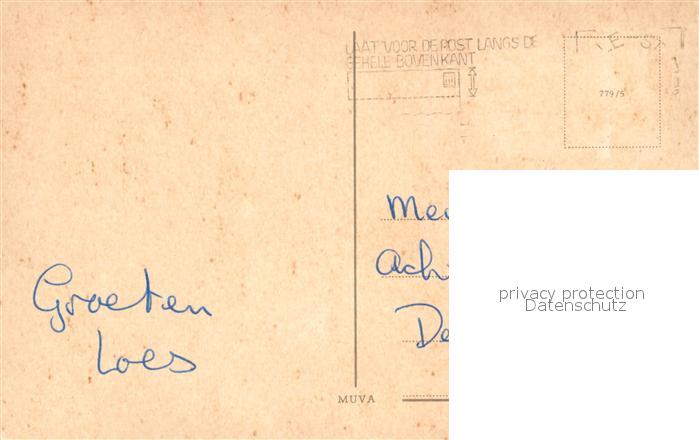 LAAT VOOR DE POST LANGS DE
GEHELE BOVENKANT
779/5
Groeten
Loes
MUVA
privacy protection
Datenschutz